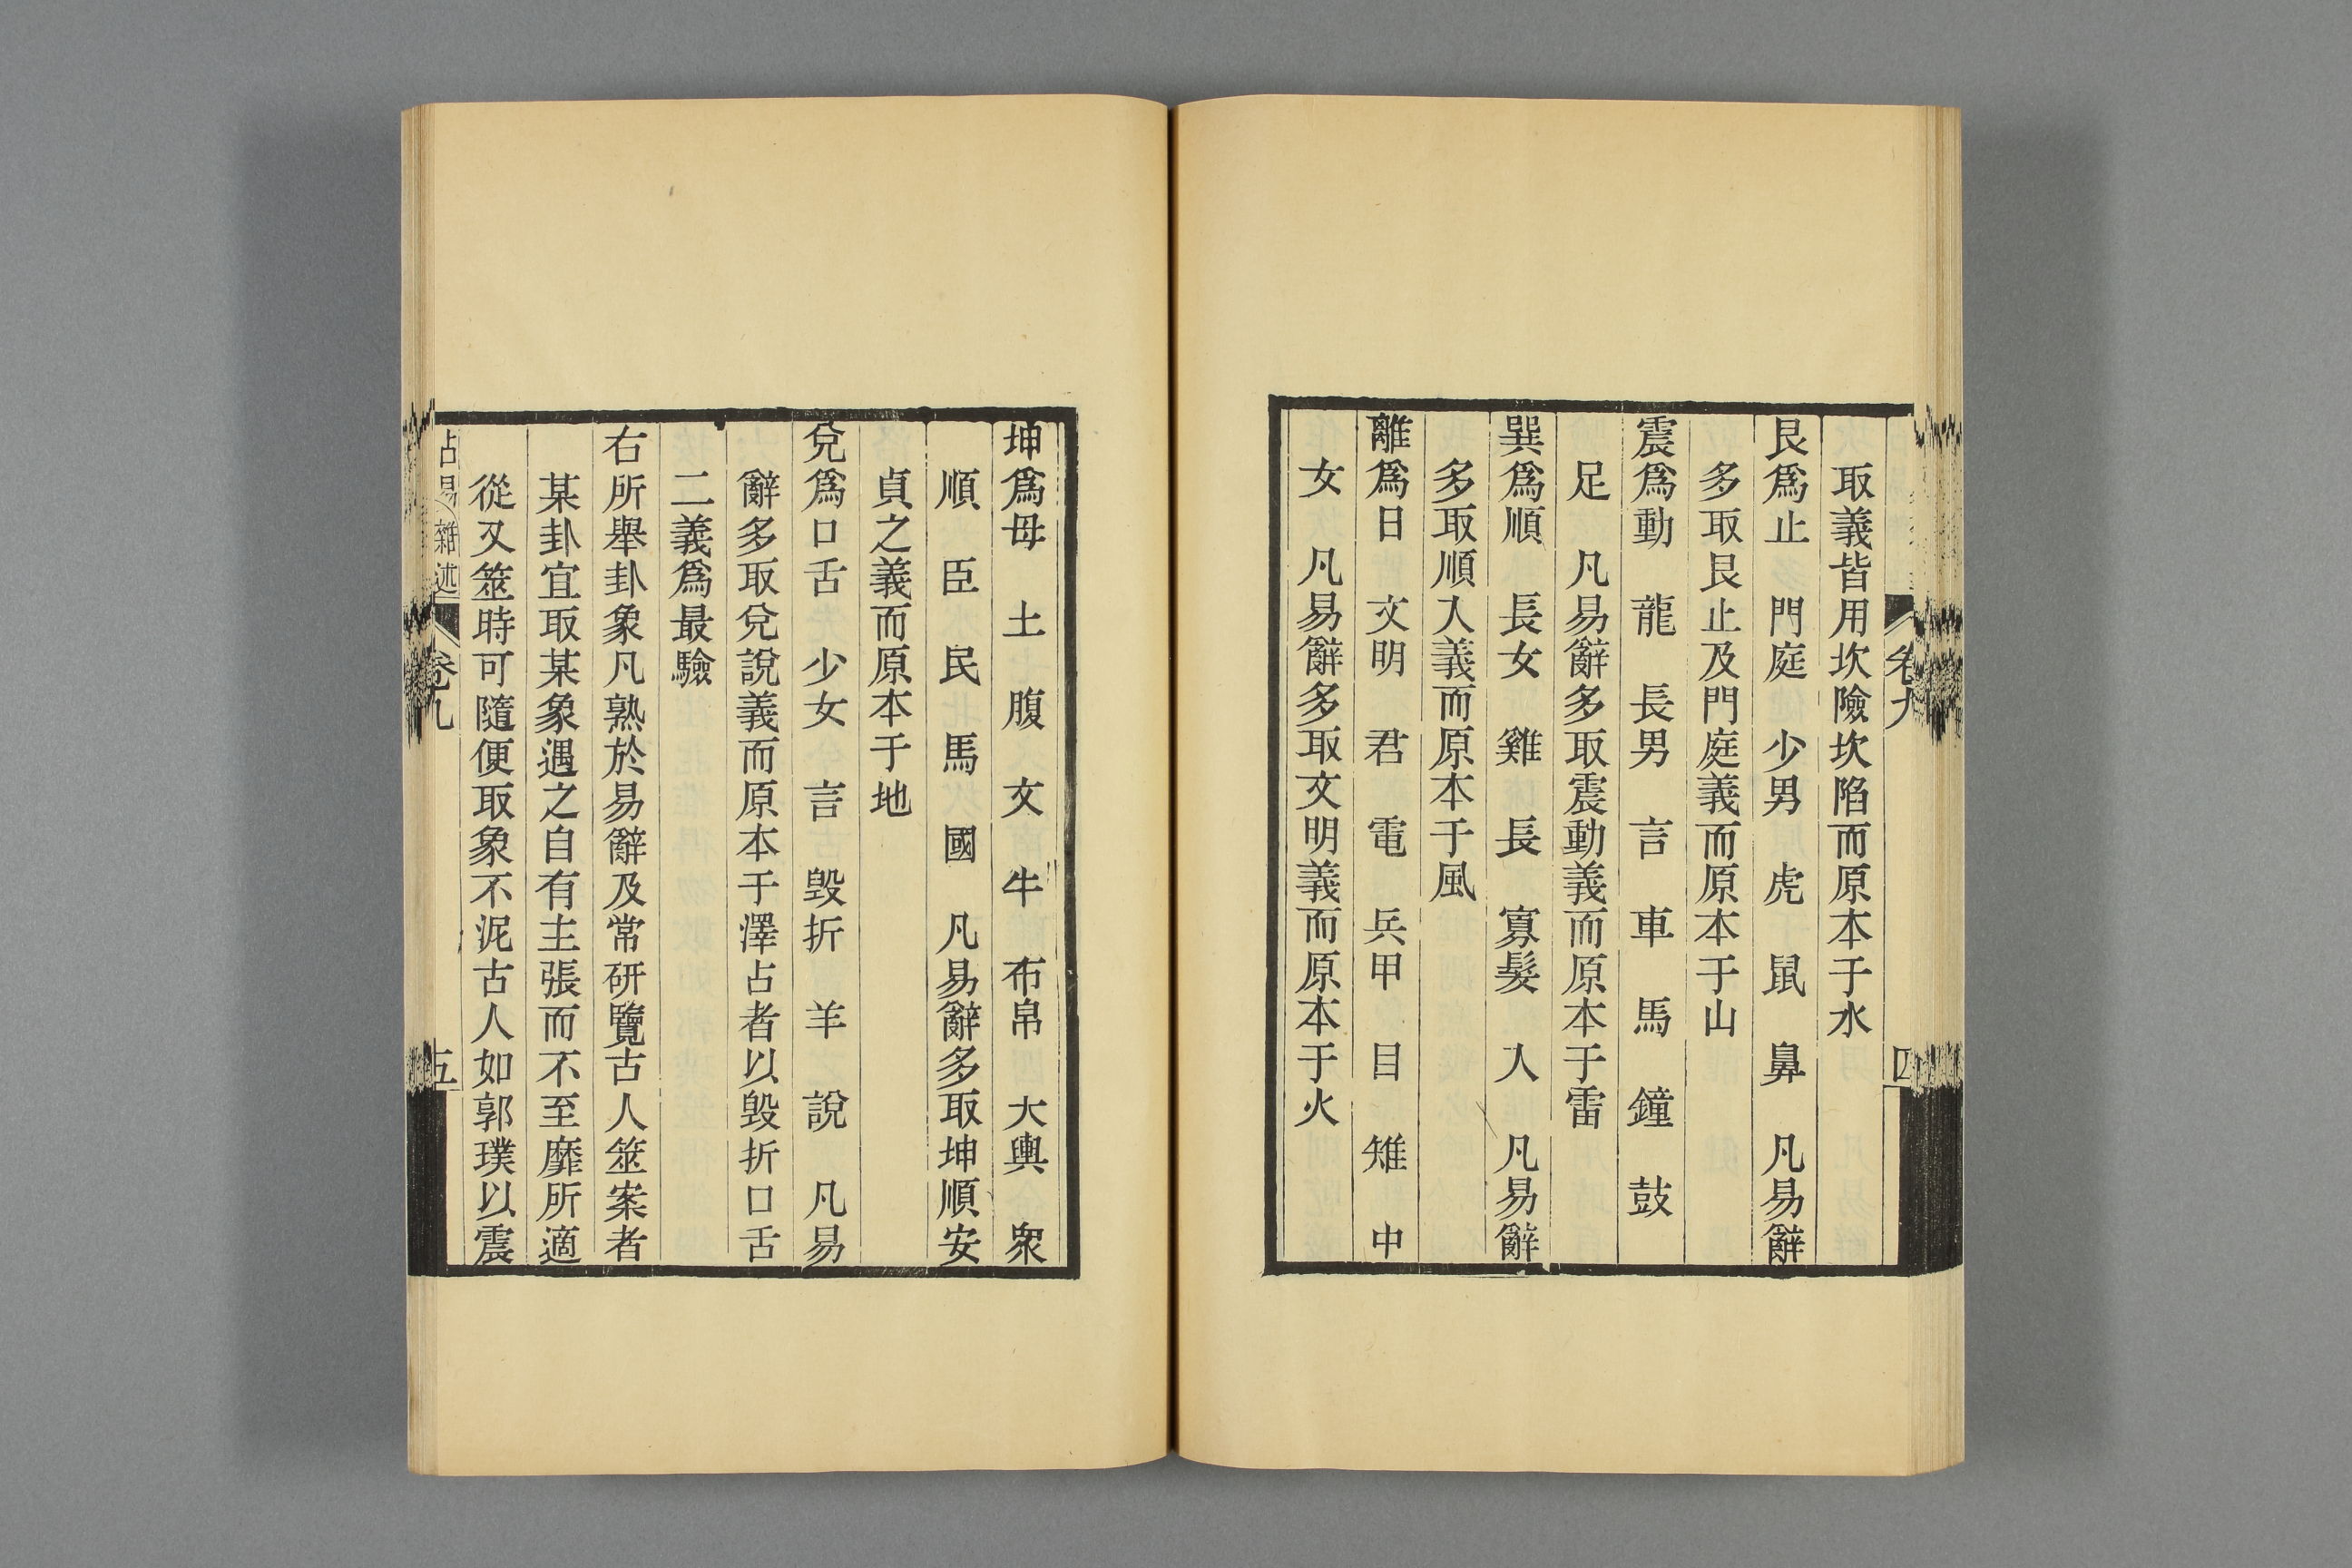 卷九
四
取義皆用坎險坎陷而原本于水
艮爲止 門庭 少男 虎 鼠 鼻 凡易辭
多取艮止及門庭義而原本于山
震爲動 龍 長男 言 車 馬 鐘 鼓
足 凡易辭多取震動義而原本于雷
巽爲順 長女 雞 長 寡髮 入 凡易辭
多取順入義而原本于風
離爲日 文明 君 電 兵甲 目 雉 中
女 凡易辭多取文明義而原本于火
坤爲母 土 腹 文 牛 布帛 大輿 衆
順 臣 民 馬 國 凡易辭多取坤順安
貞之義而原本于地
兌爲口舌 少女 言 毀折 羊 說 凡易
辭多取兌說義而原本于澤占者以毀折口舌
二義爲最驗
右所舉卦象凡熟於易辭及常研覽古人筮案者
某卦宜取某象遇之自有主張而不至靡所適
從又筮時可隨便取象不泥古人如郭璞以震
占易雜述
卷九
五